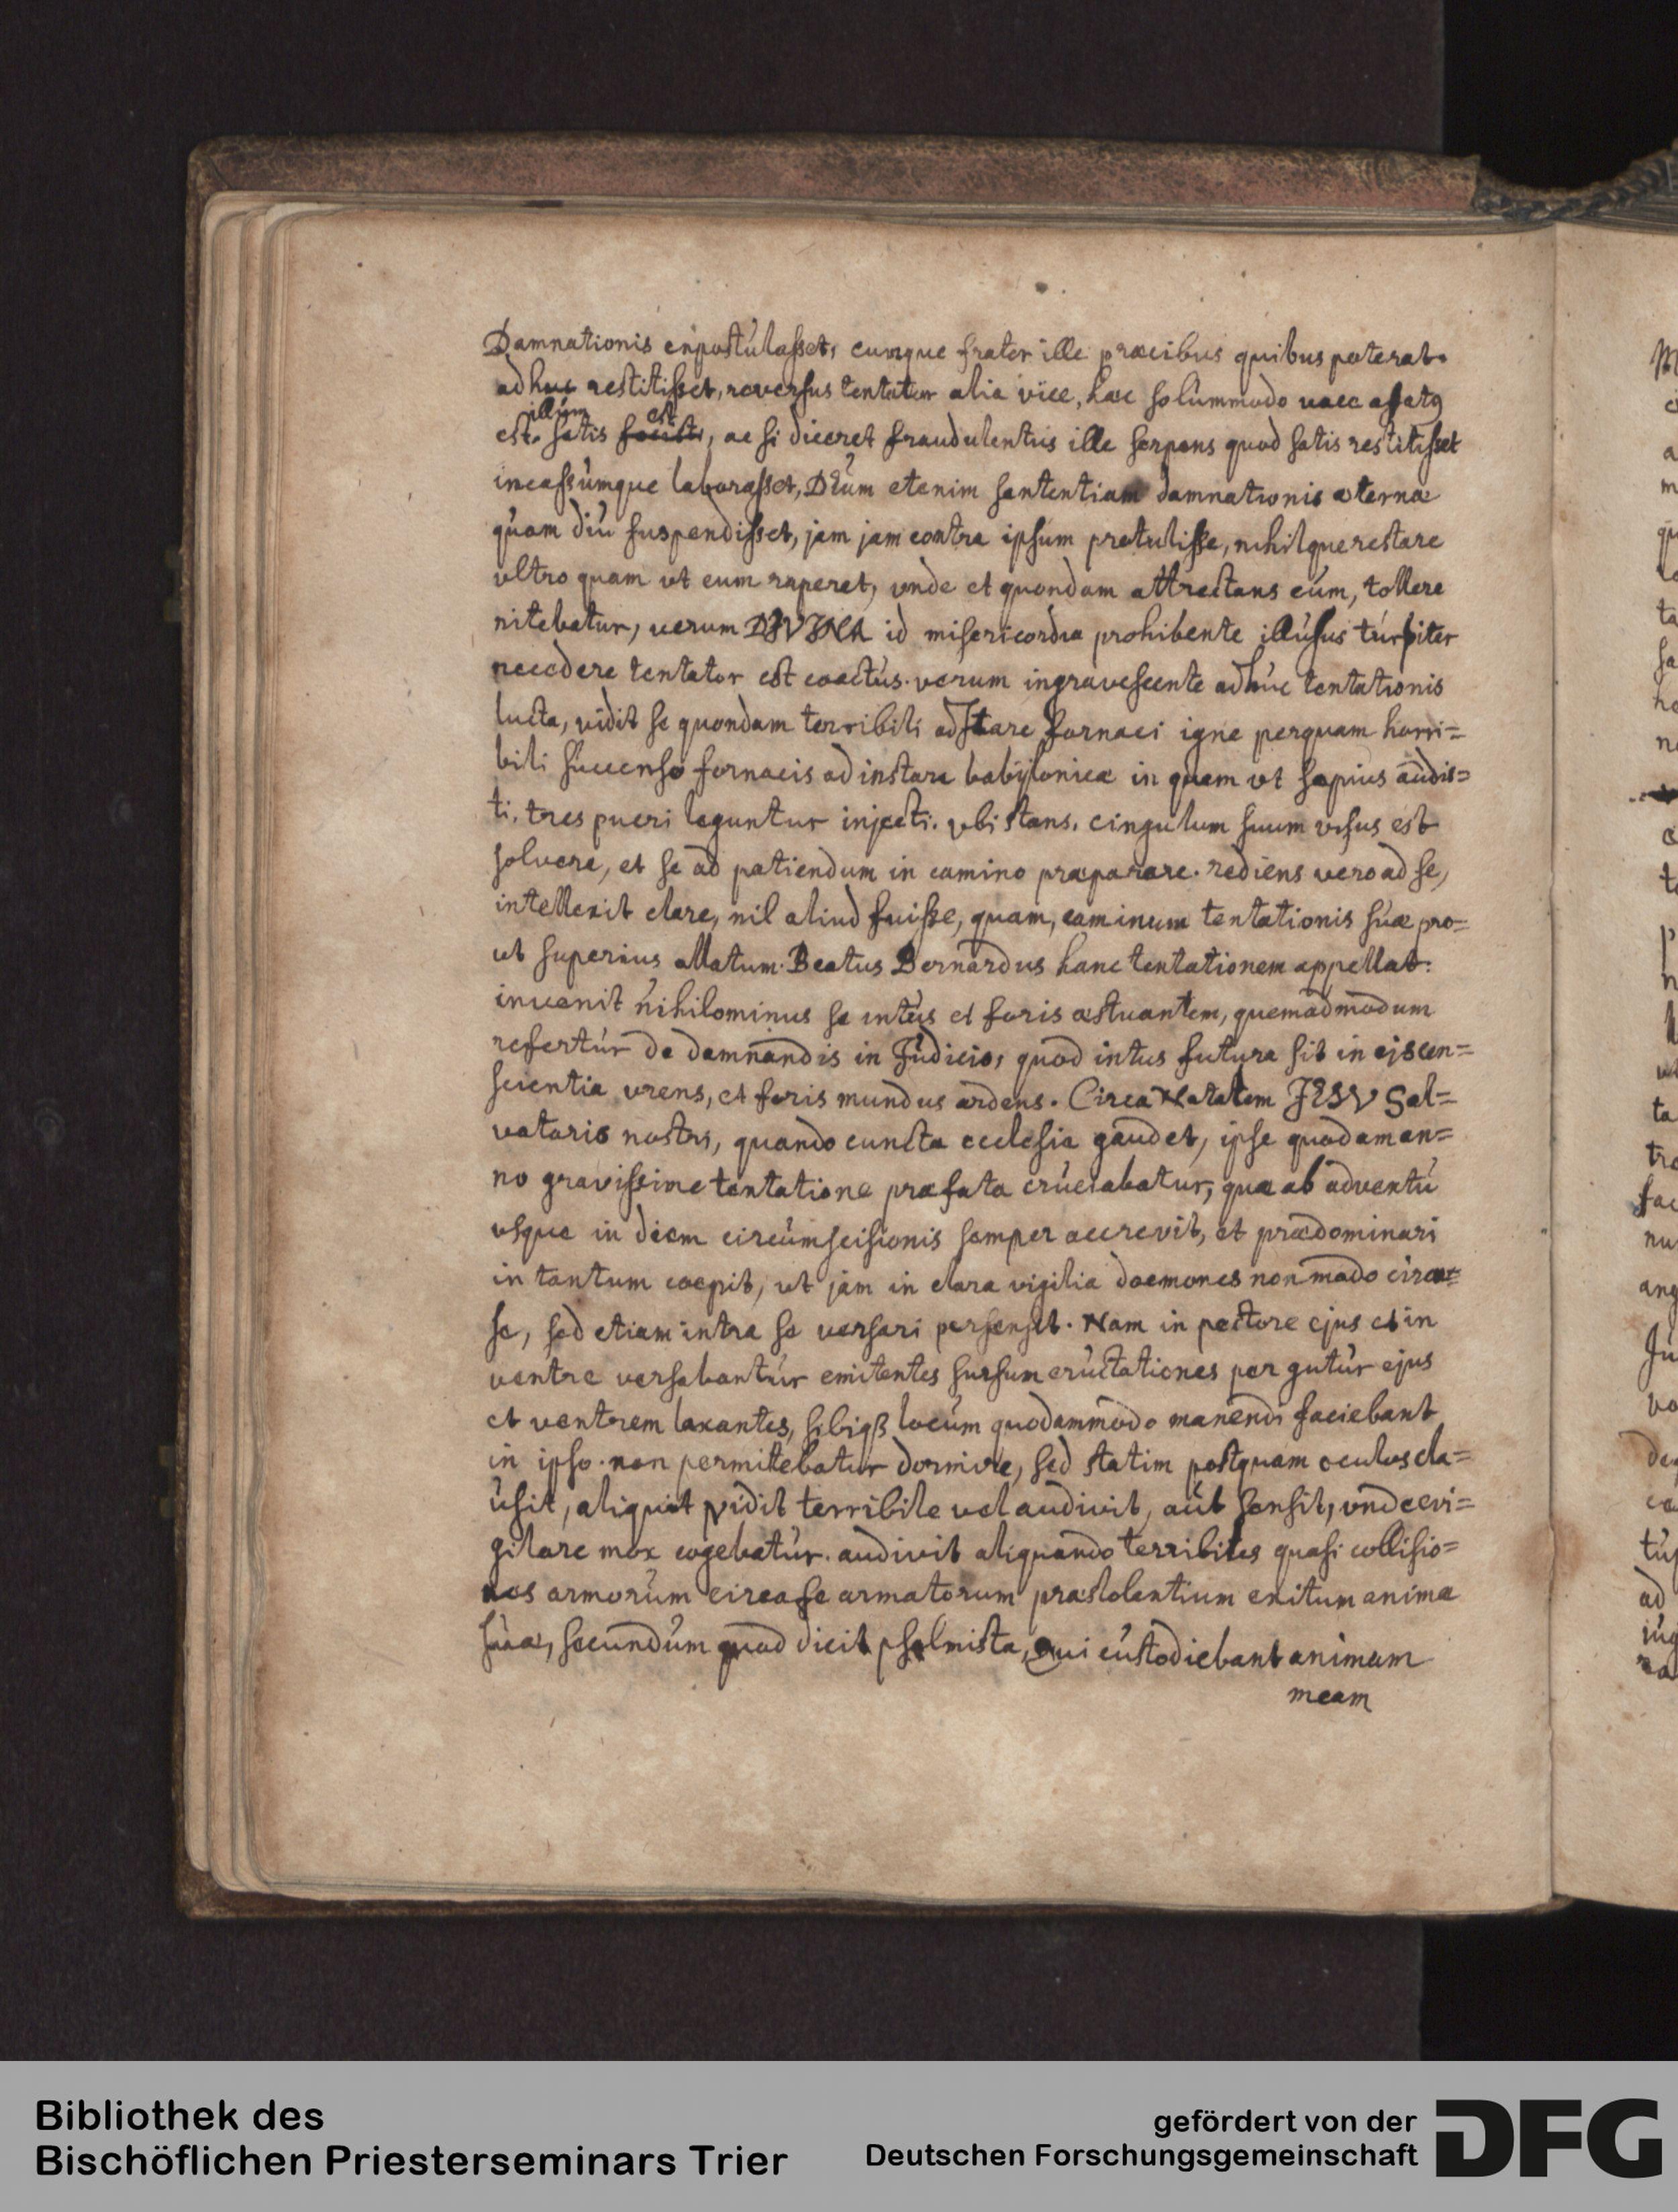 Damnationis expostulasset, cumque frater ille præcibus quibus poterat.
adhuc restitisset, reversus tentator alia vice, hac solummodo voce affatq
est. illum satis est, ac si diceret fraudulentus ille serpens quod satis restitisset
incassumque laborasset, DEum etenim sententiam damnationis æternæ
quam diu suspendisset, jam jam contra ipsum protulisse, nihilque restare
vltro quam vt eum raperet, vnde et quondam attrectans eum, tollere
nitebatur, verum DIVINA id misericordia prohibente illusus turpiter
recedere tentator est coactus. verum ingravescente adhuc tentationis
lucta, vidit se quondam terribili adstare fornaci igne perquam horri=
bili succenso fornacis ad instara babylonicæ in quam vt sæpius audis=
ti, tres pueri leguntur injecti. vbi stans, cingulum suum visus est
solvere, et se ad patiendum in camino præparare. rediens vero ad se,
intellexit clare, nil aliud fuisse, quam, caminum tentationis suæ pro=
ut superius allatum. Beatus Bernardus hanc tentationem appellat.
invenit nihilominus se intus et foris æstuantem, quemadmodum
refertur de damnandis in Judicio, quod intus futura sit in ejs con=
scientia vrens, et foris mundus ardens. Circa Natalem JESV Sal=
vatoris nostri, quando cuncta ecclesia gaudet, ipse quodam an=
no gravissime tentatione præfata cruciabatur, quæ ab adventu
vsque in diem circumscisionis semper accrevit, et prædominari
in tantum coepit, ut jam in clara vigilia doemones non modo circa
se, sed etiam intra se versari persensit. Nam in pectore ejus et in
ventre versabantur emitentes sursum eructationes per gutur ejus
et ventrem laxantes, sibiqß locum quodammodo manendi faciebant
in ipso. non permitebatur dormire, sed statim postquam oculos cla=
usit, aliquot vidit terribile vel audivit, aut sensit, vnde evi=
gilare mox cogebatur. audivit aliquando terribiles quasi collisio=
nes armorum circa se armatorum præstolentium exitum animæ
suæ, secundum quod dicit psalmista, qui custodiebant animam
meam
Bibliothek des
Bischöflichen Priesterseminars Trier
gefördert von der
Deutschen Forschungsgemeinschaft
DFG